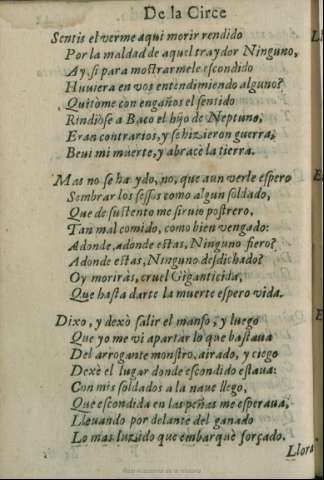 De la Circe
Sentis el verme aqui morir rendido
Por la maldad de aquel traydor Ninguno,
Ay, si para mostrarmele escondido
Huuiera en vos entendimiendo alguno?
Quitome con engaños el sentido
Rindiòse a Baco el hijo de Neptuno,
Eran contrarios, y se hizieron guerra,
Beui mi muerte, y abracè la tierra.
Mas no se ha ydo, no, que aun verle espero
Sembrar los sessos como algun soldado,
Que de sustento me siruio postrero,
Tan mal comido, como bien vengado:
Adonde, adonde estas, Ninguno fiero?
Adonde estas, Ninguno desdichado?
Oy moriràs, cruel Giganticida,
Que hasta darte la muerte espero vida.
Dixo, y dexò salir el manso, y luego
Que yo me vi apartar lo que bastaua
Del arrogante monstro, airado, y ciego
Dexè el lugar donde escondido estaua:
Con mis soldados a la naue llego,
Que escondida en las peñas me esperaua,
Lleuando por delante del ganado
Lo mas luzido que embarquè forçado.
Llora
Real Academia de la Historia